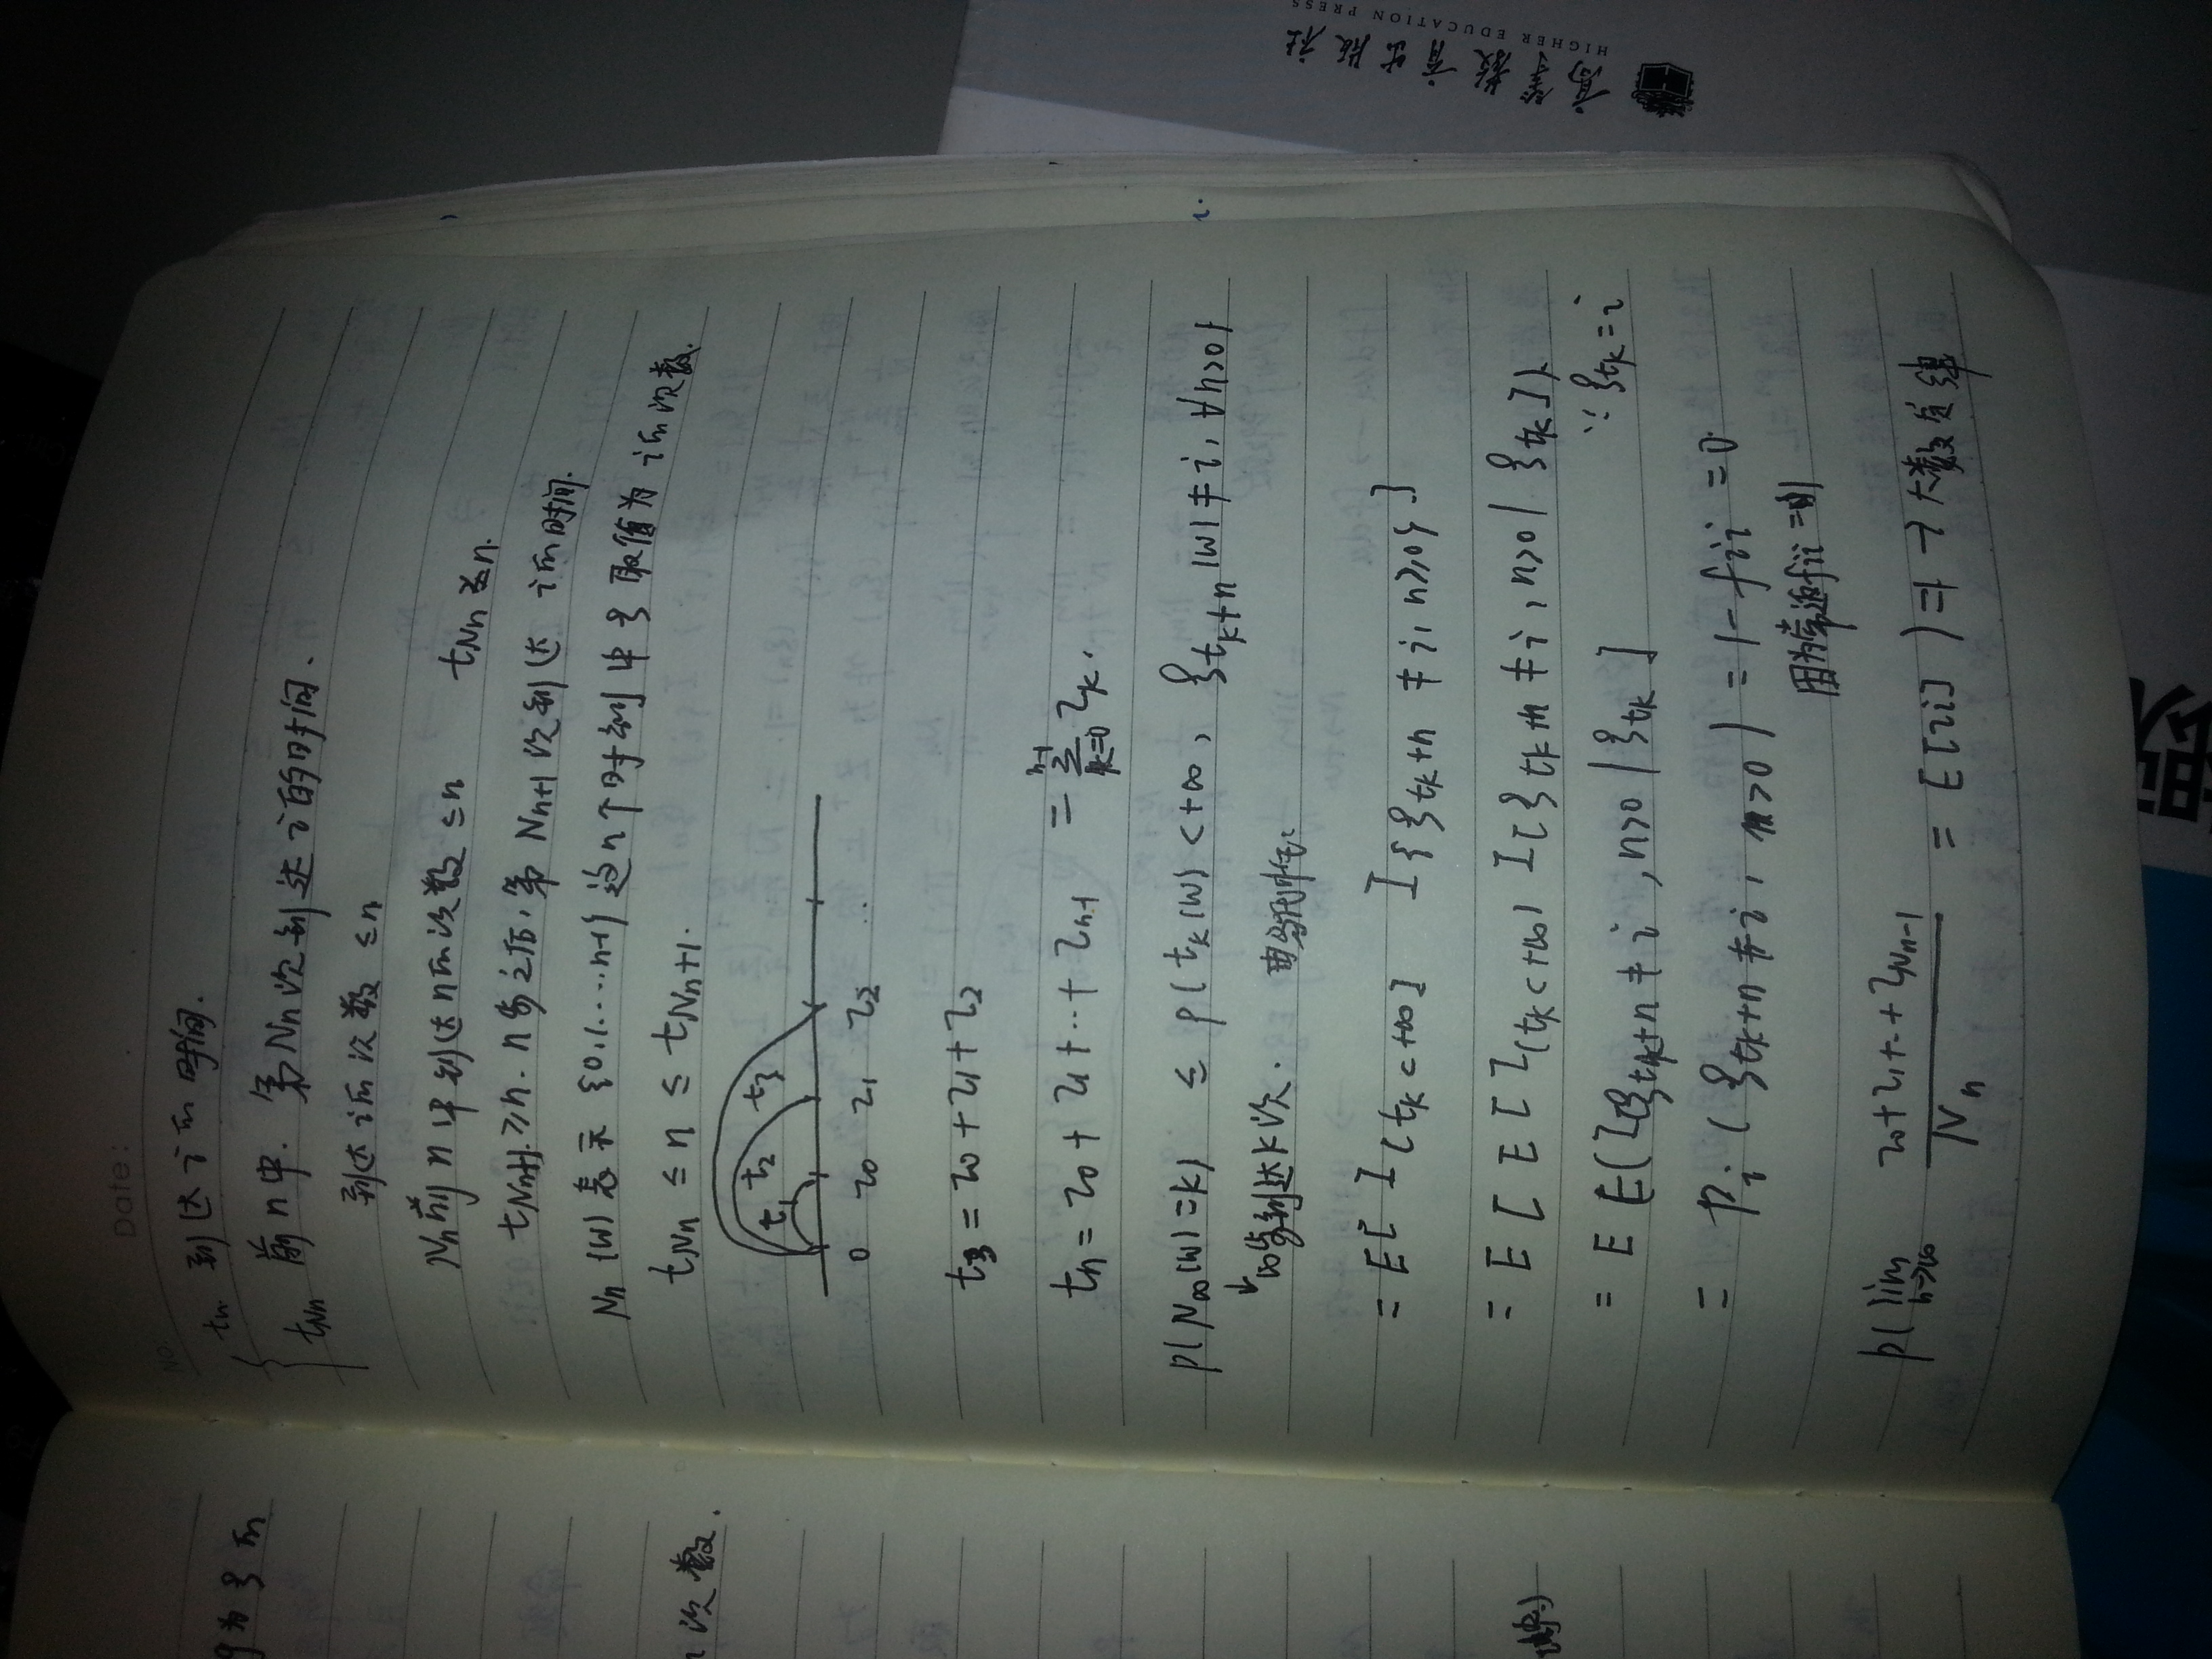 Date:
No.
tn 到达i的时间.
tNn 前n中. 第Nn次到达i的时间.
到达i的次数 ≤n
Nn前n中到达n的次数 ≤n tNn ≤n.
tNn+1 ≥n. n步之后, 第Nn+1次到达 i的时间.
Nn(w)表示{0,1....,n-1}这n个时刻中ξ取值为i的次数.
tNn ≤ n ≤ tNn+1.
t1 t2 t3
0 τ0 τ1 τ2 ..
t3 = τ0 + τ1 + τ2
tn = τ0 + τ1 + ... + τn-1 = ∑ k=0 n-1 τk.
P(N∞(w)=k) ≤ P(tk(w) <+∞, ξtk+n(w) ≠ i, ∀n>0)
↓∞步到达k次. 由马氏性:
= E[ I(tk<+∞] I{ξtk+n ≠ i, n>0} ]
= E [ E [ I(tk<+∞) I[ξtk+n ≠ i, n>0 | ξtk ] ).
= E E( I[ξtk+n ≠ i, n>0 | ξtk ] ∵ ξtk = i
= Pi ( ξtk+n ≠ i, n>0 ) = 1- fii = 0
因为常返fii = 1
P( lim n→∞ τ0+τ1+..+τNn-1 / Nn = E[τi] ) =1 → 大数定律
g为ξ的
次数.
高等教育出版社
HIGHER EDUCATION PRESS